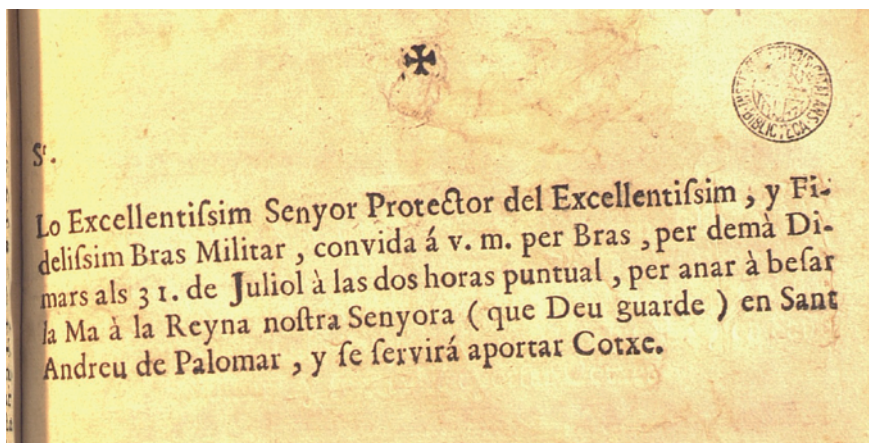 ✠
INSTITUT D'ESTUDIS CATALANS
BIBLIOTECA
Sr.
Lo Excellentiſsim Senyor Protector del Excellentiſsim , y Fi-
deliſsim Bras Militar , convida á v. m. per Bras , per demà Di-
mars als 31. de Juliol à las dos horas puntual , per anar à beſar
la Ma à la Reyna noſtra Senyora ( que Deu guarde ) en Sant
Andreu de Palomar , y ſe ſervirá aportar Cotxe.